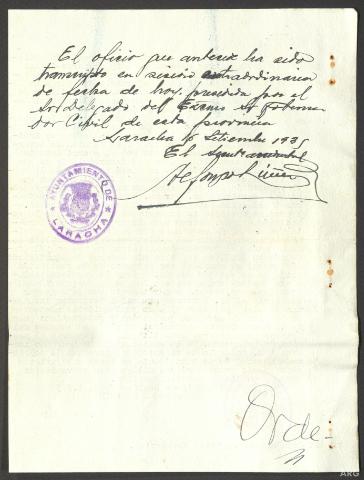 El oficio que antecede ha sido
transcripto en sesión extraordinaria
de fecha de hoy, presidida por el
Sr Delegado del Excmo Sr Goberna
dor Civil de esta provincia
Laracha 16 Setiembre 1935
El
AYUNTAMIENTO DE
LARACHA
Orde-
ARG